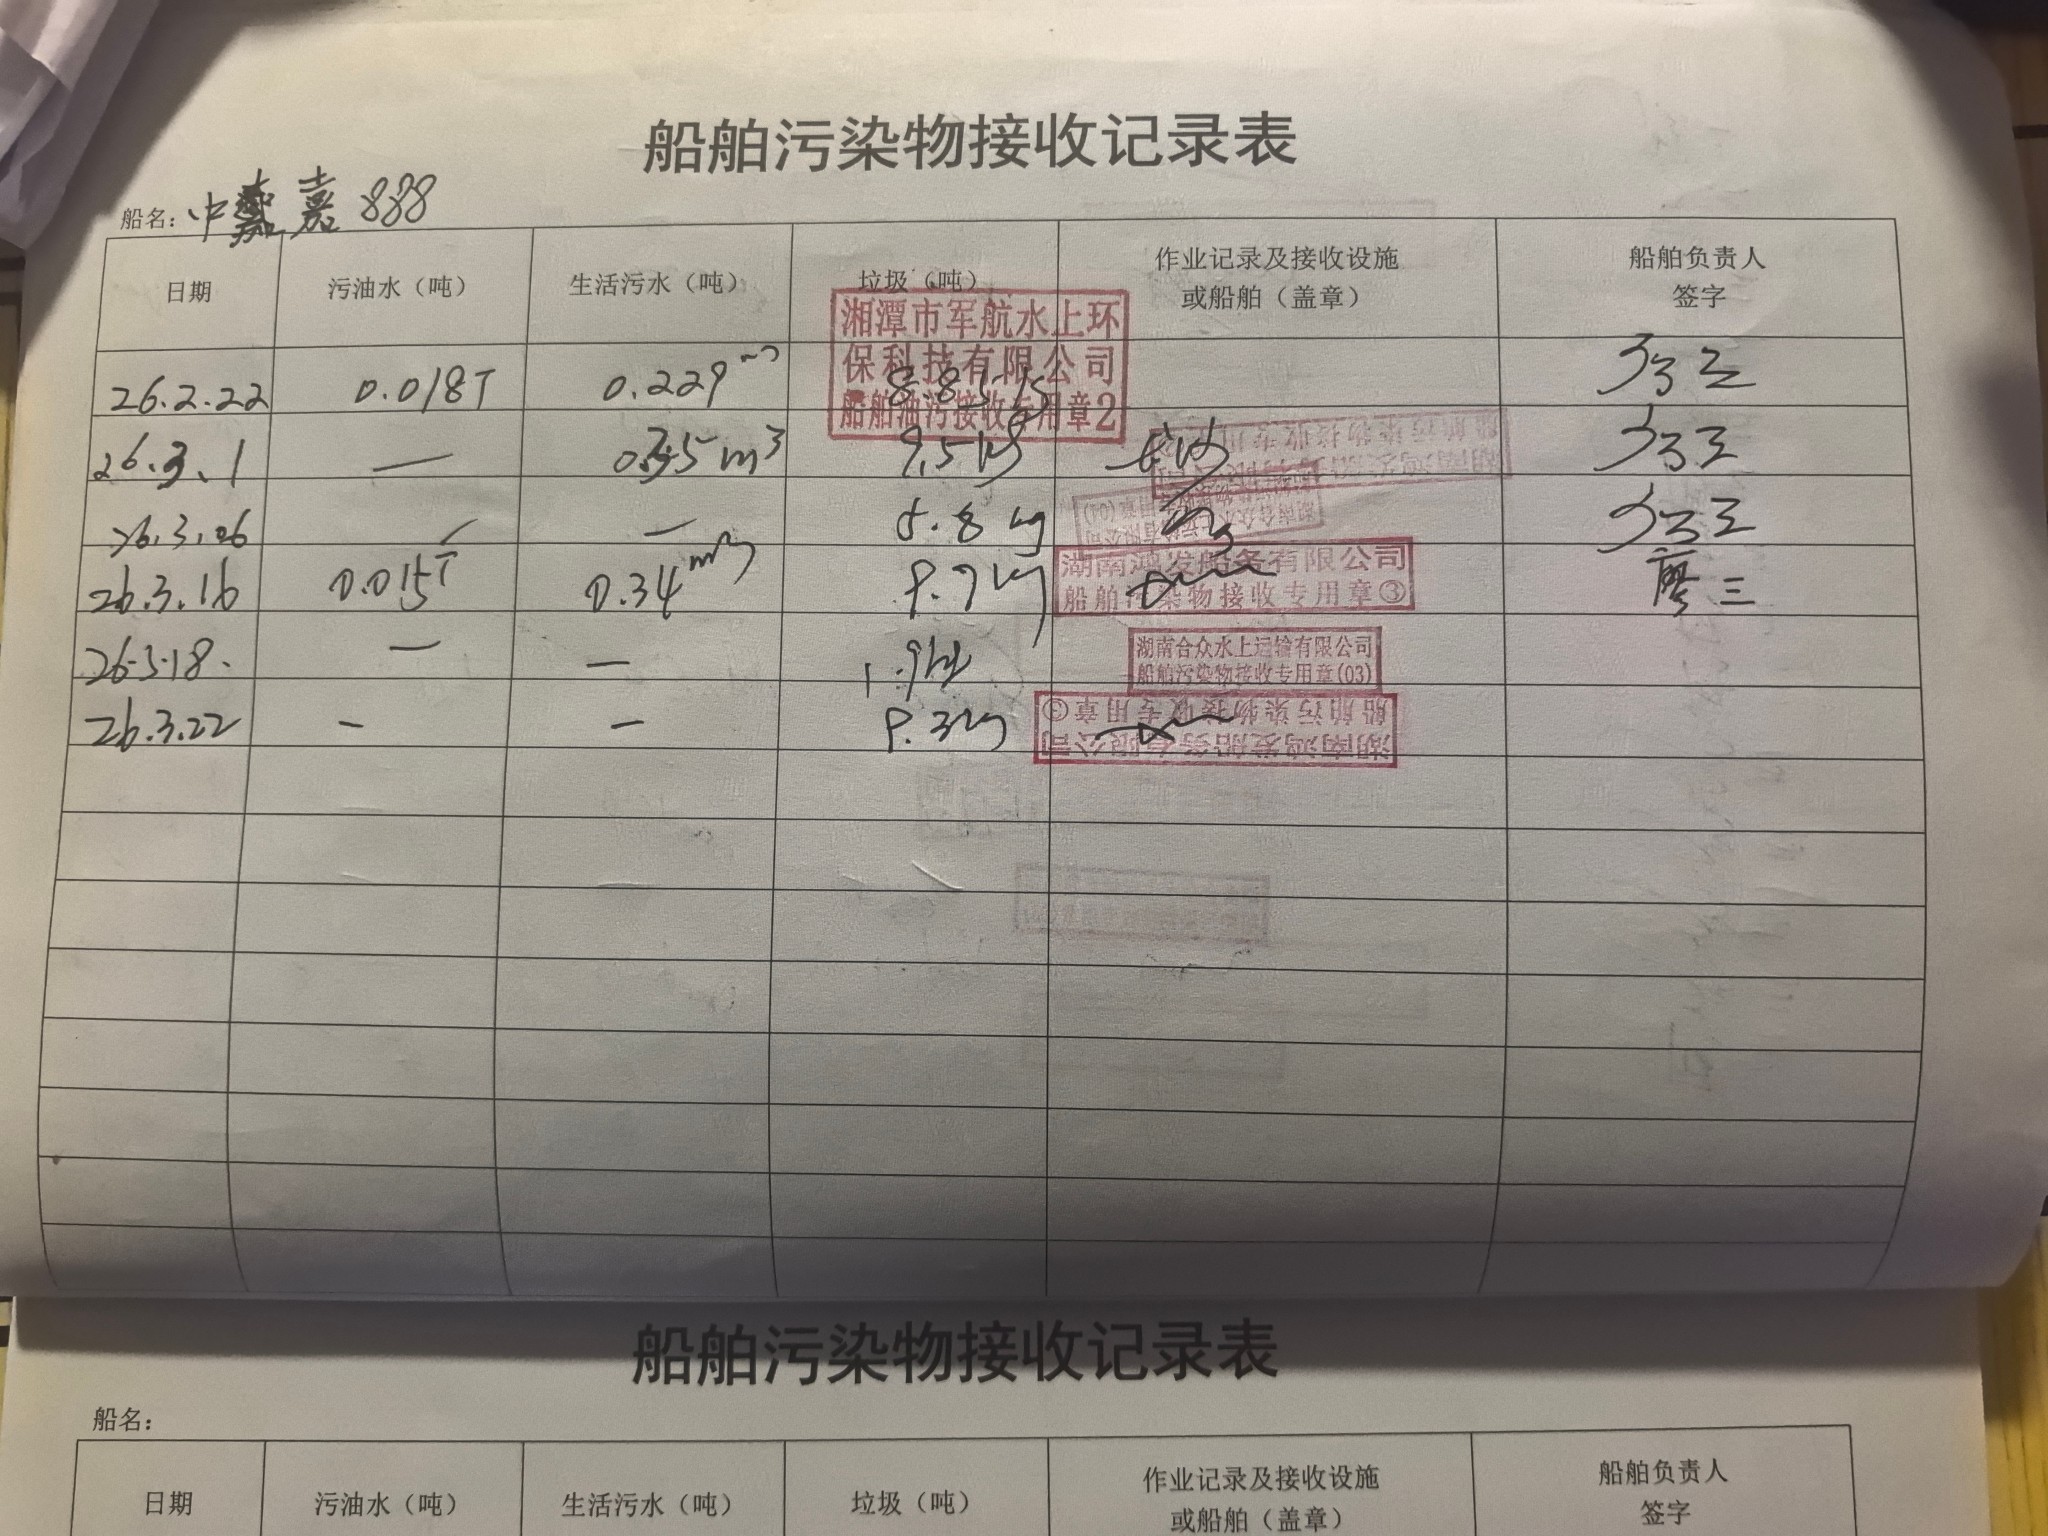 船舶污染物接收记录表
船名: 中 嘉 888
日期 污油水（吨） 生活污水（吨） 垃圾（吨） 作业记录及接收设施或船舶（盖章） 船舶负责人签字
湘潭市军航水上环
保科技有限公司
船舶油污接收专用章2
26.2.22 0.018T 0.229 8.85kg
26.3.1 — m³ 9.5kg
26.3.06 — — 5.8kg
湖南鸿发船务有限公司
船舶污染物接收专用章③
26.3.16 0.015T 0.34m³ 廖三
湖南合众水上运输有限公司
船舶污染物接收专用章(03)
— —
湖南鸿发船务有限公司
船舶污染物接收专用章③
26.3.22 — —
船舶污染物接收记录表
船名:
日期 污油水（吨） 生活污水（吨） 垃圾（吨） 作业记录及接收设施或船舶（盖章） 船舶负责人签字